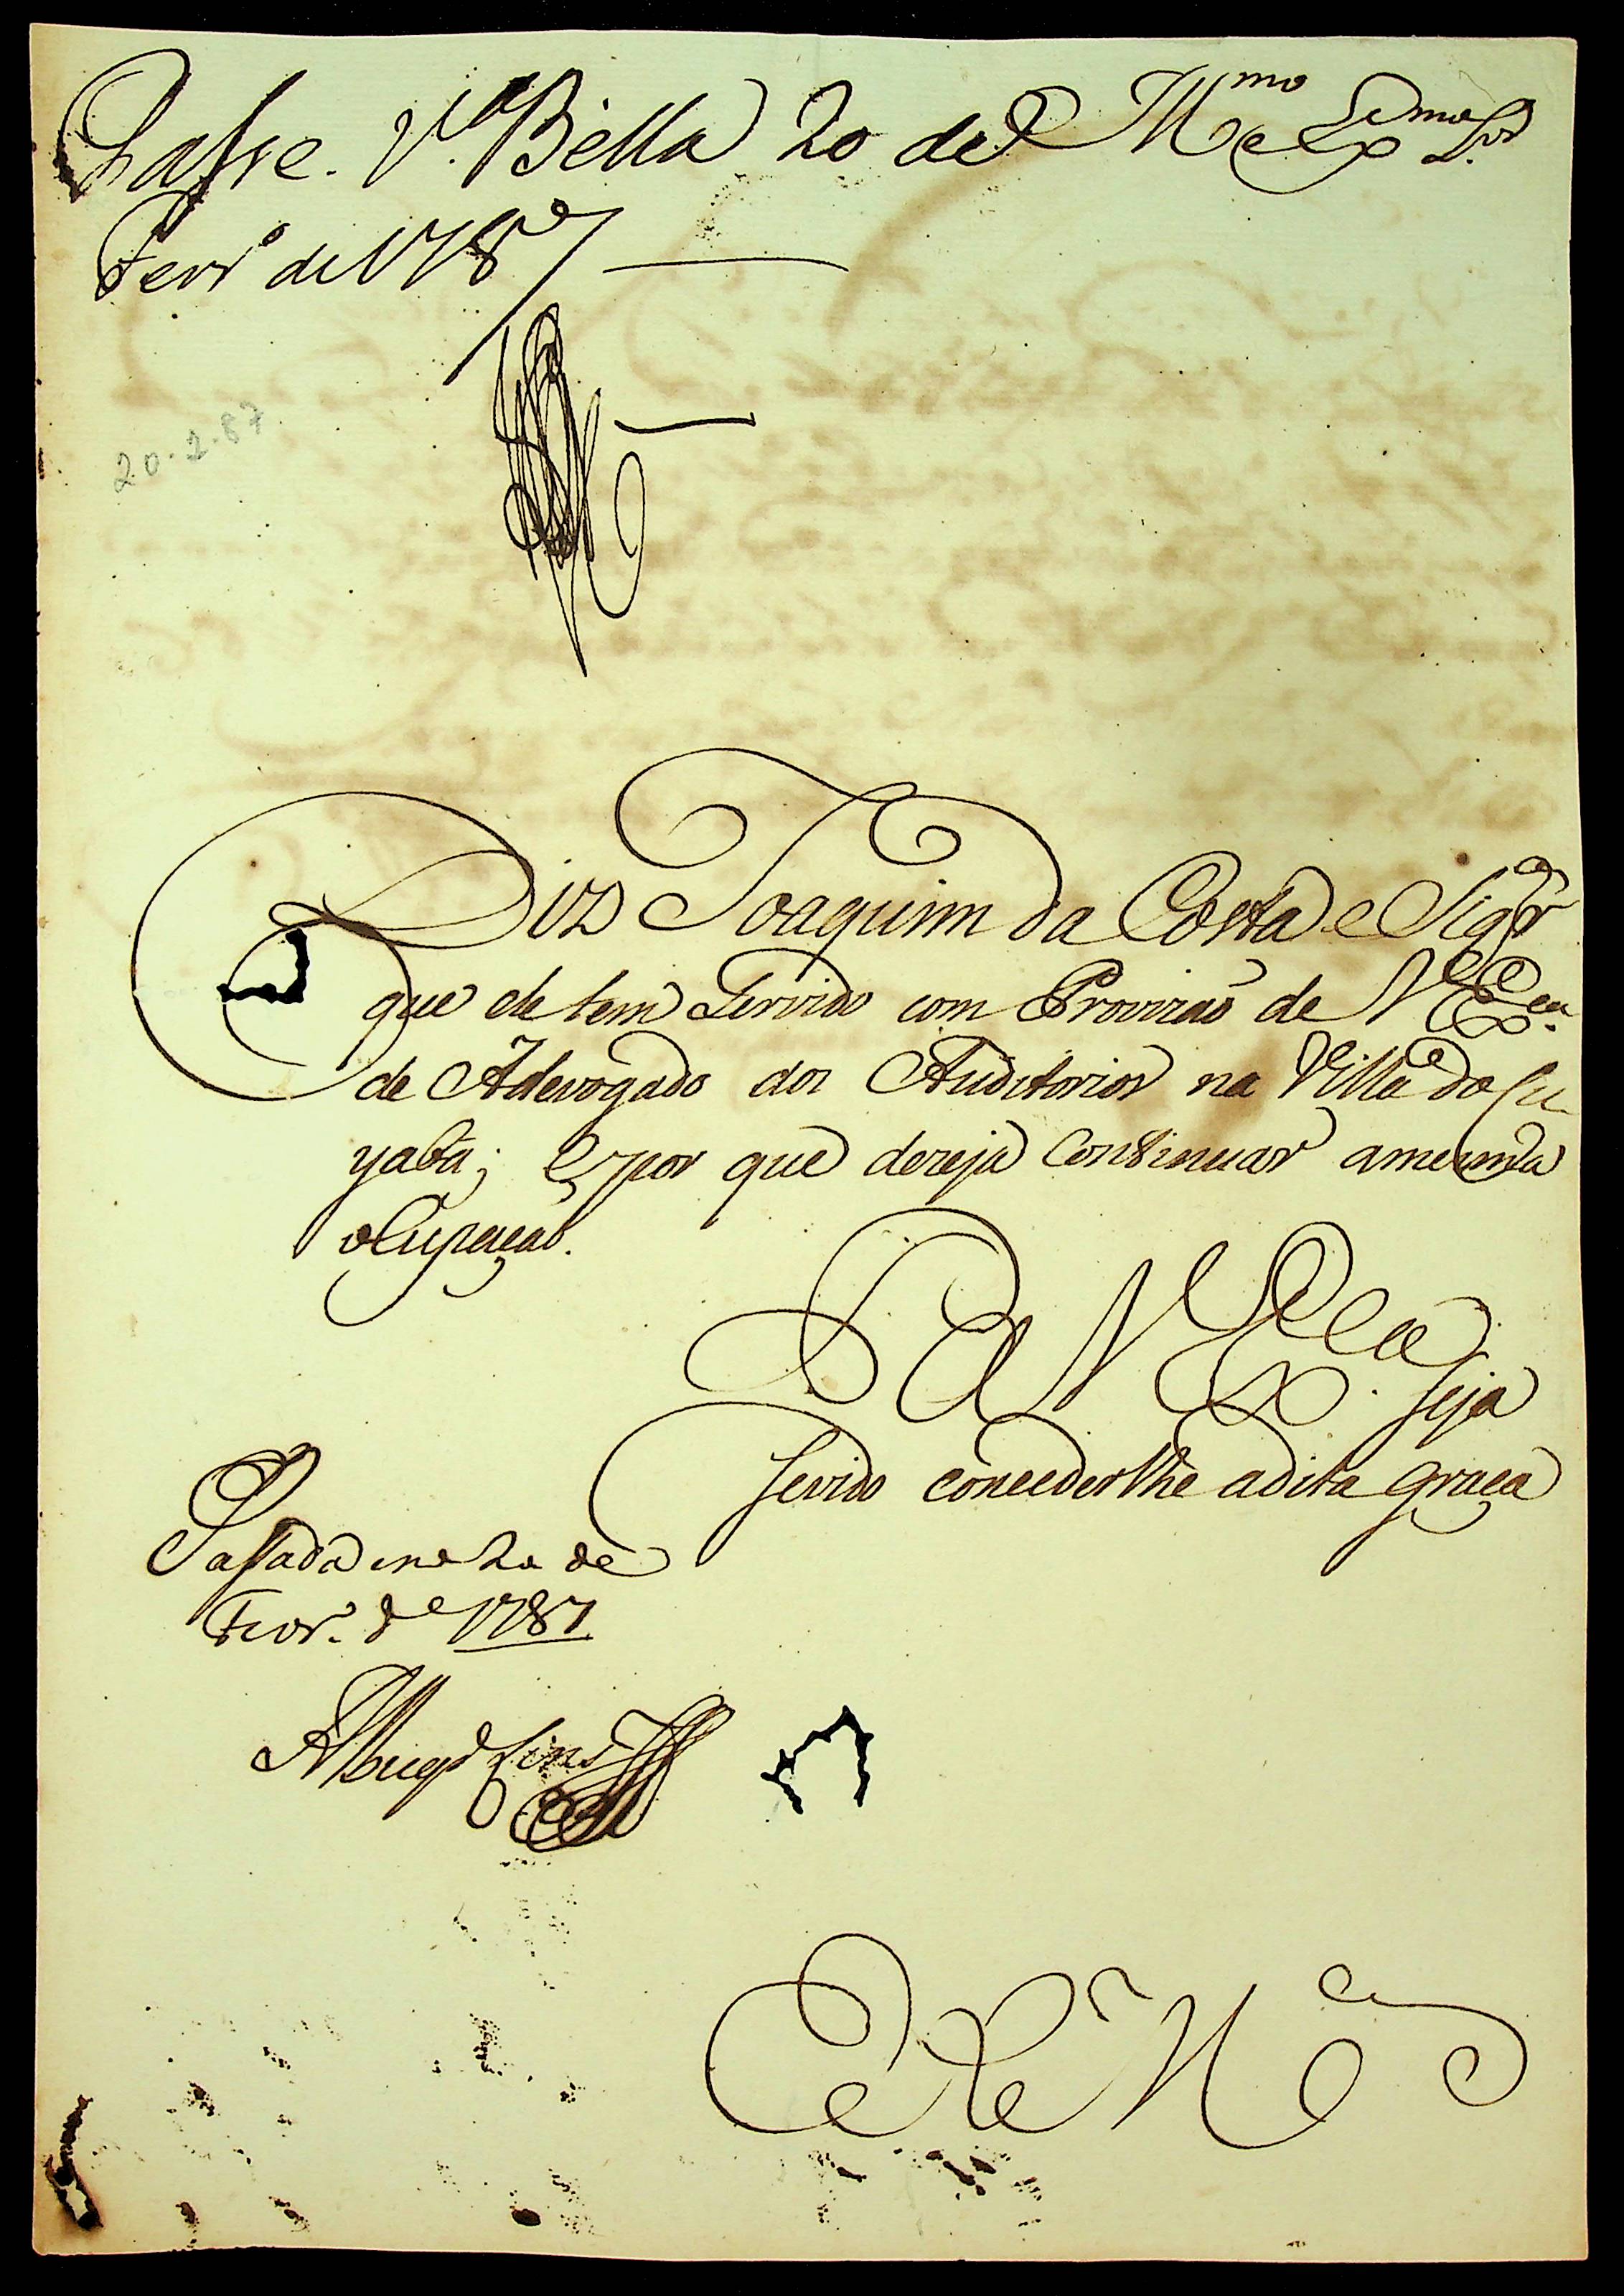 Passe. V.ª Bella 20 de
Fevr.º de 1787
Ill.mo e Ex.mo S.or
20-2-87
Diz Joaquim da Costa e Siqr.ª
que ele tem Servido com Provizaõ de V Ex.ca
de Adevogado dos Auditorios na Villa do Cu
yabá; E por que dezeja Continuar a mesma
oCupaçaõ.
P a V Ex.ca seja
servido conceder lhe a dita graça
Pasada em 20 de
Fevr.º de 1787
E R M.ce